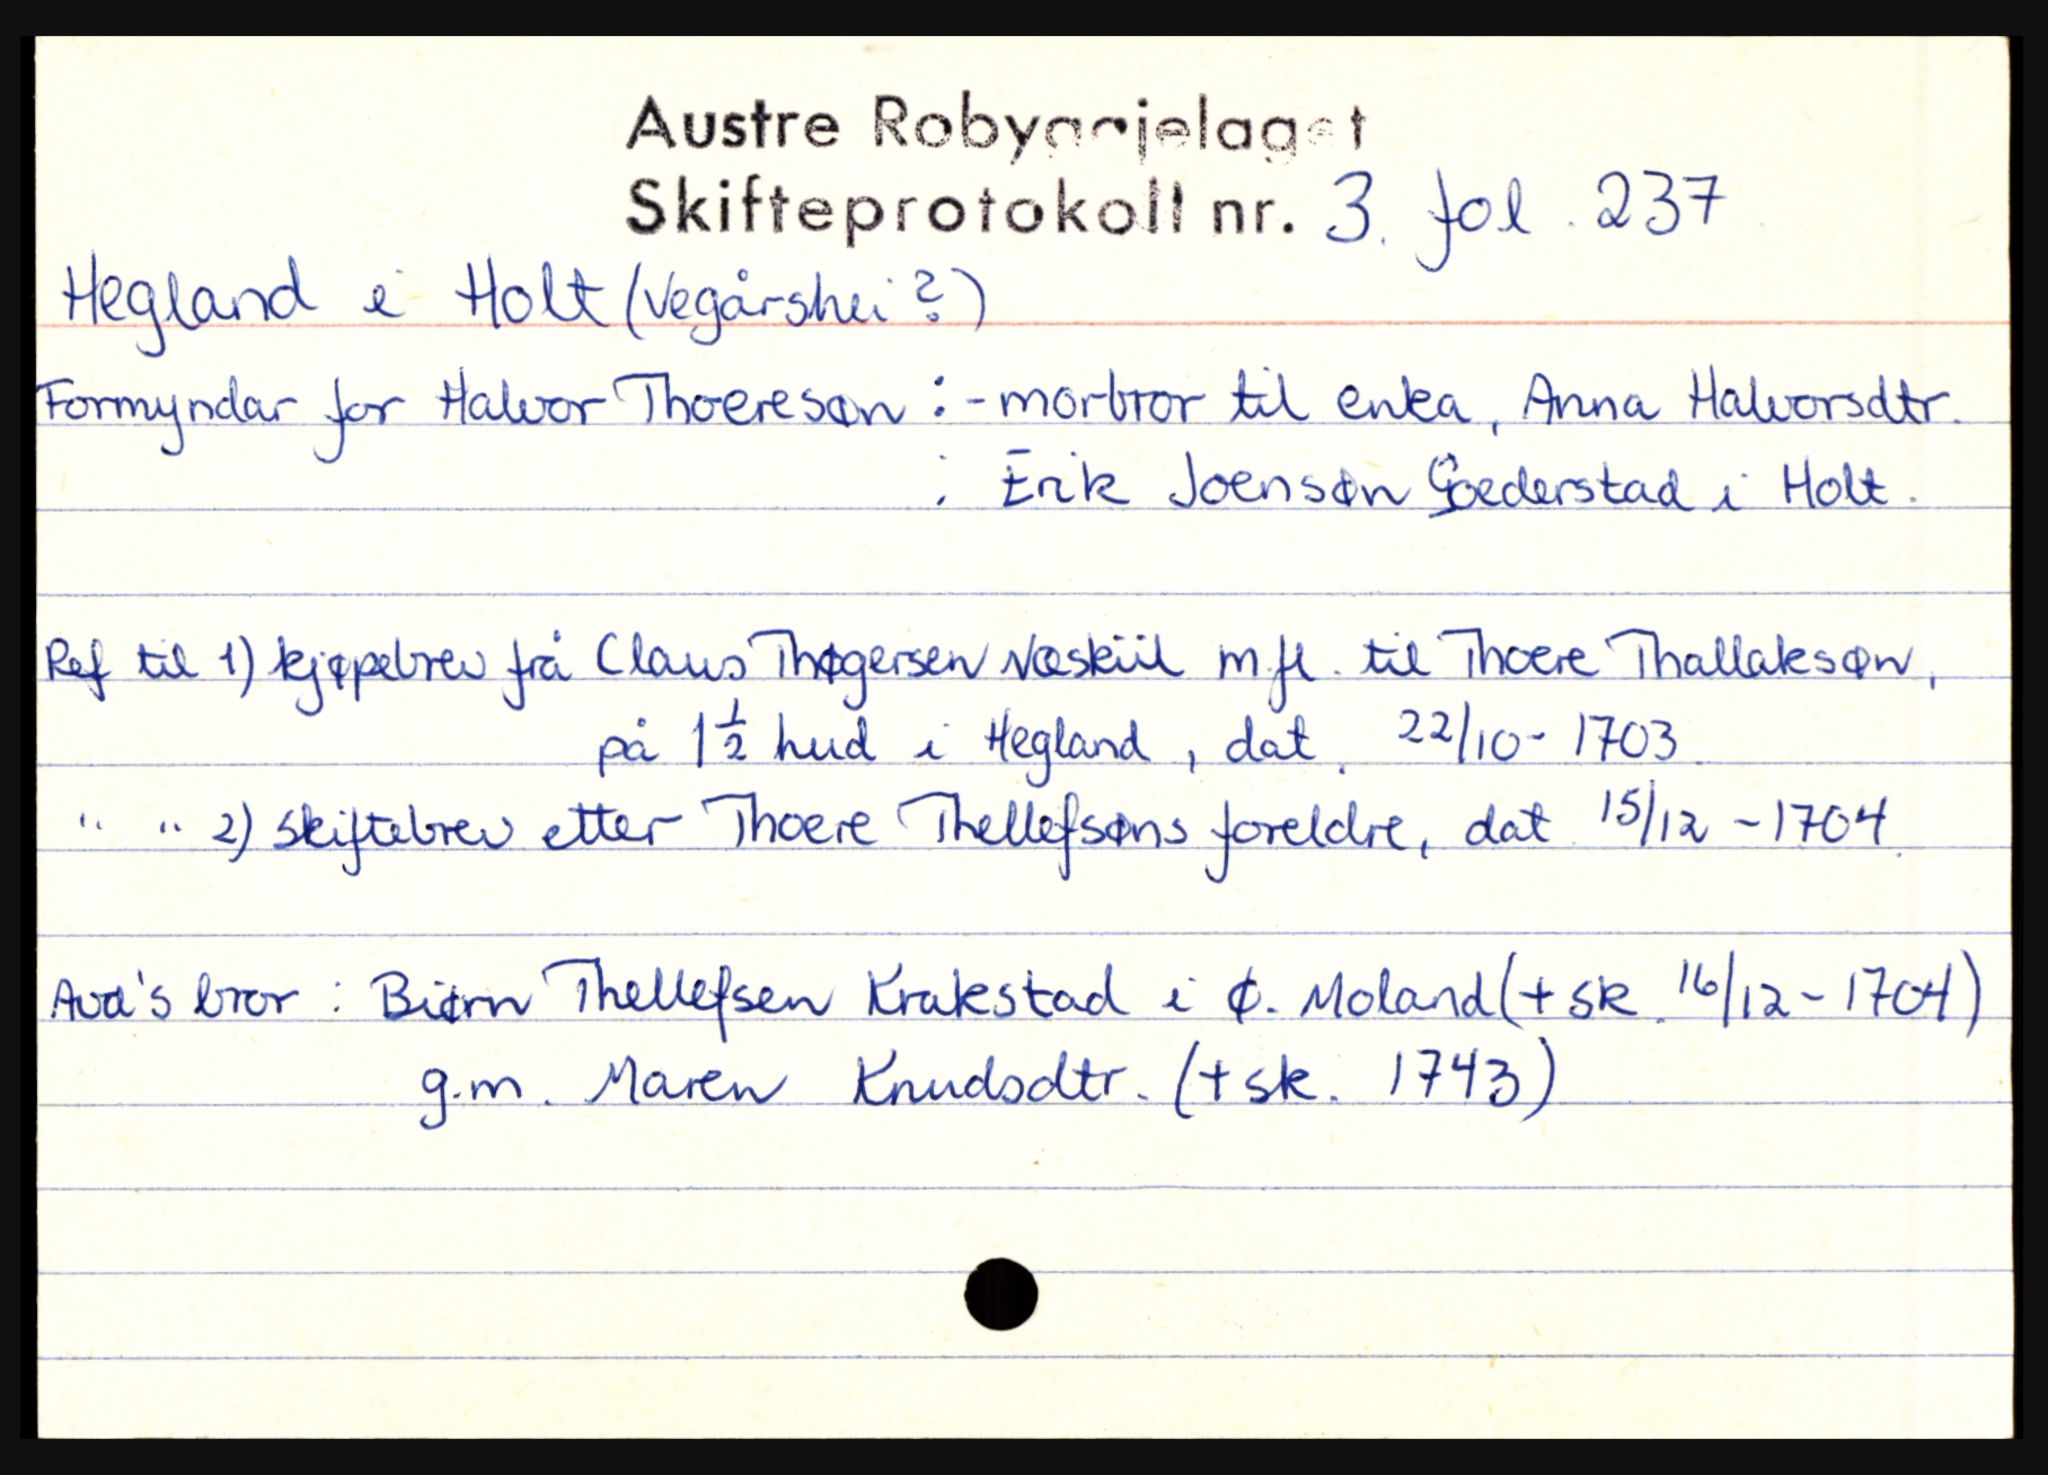 Austre Robyggjelaget
Skifteprotokoll nr. 3. fol. 237
Hegland i Holt (Vegårshei?)
Formyndar for Halvor Thoeresøn : - morbror til enka, Anna Halvorsdtr.
: Erik Joensøn Goederstad i Holt.
Ref til 1) kjøpebrev frå Claus Thøgersen Næskiil m.fl. til Thoere Thallaksøn,
på 1 1/2 hud i Hegland, dat. 22/10-1703
" " 2) skiftebrev etter Thoere Thellefsøns foreldre, dat 15/12-1704.
Avd's bror : Biørn Thellefsen Krakstad i Ø. Moland (+ sk. 16/12-1704)
g.m. Maren Knudsdtr. (+ sk. 1743)